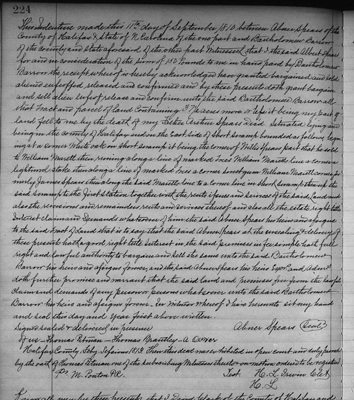 224
This Indenture made this 11th day of September 1810 between Abner Spears of the
County of Halifax & State of N. Carolina of the one part and Bartholomew Barrow
of the county and State aforesaid of the other part Witnesseth that I the said Abner Spears
for and in consideration of the sum of Pounds to me in hand paid by Bartholomew
Barrow the receipt whereof is hereby acknowledged have granted bargained and sold
aliened enfeoffed released and confirmed and by these presents do the grant bargain
and sell alien enfeof release and confirm unto the said Bartholomew Barrow all
that Tract and parcel of land containing acres more or less it being my part of
land fell to me by the death of my Spears died intestate lying and
being in the county of Halifax and on the East side of short swamp bounded as follows begin
ing at a corner White oak on short swamp it being the corner of Wills Spears part that he sold
to William Marett then running along a line of marked trees William Maretts line a corner
lightwood stake then along line of marked trees a corner William Maretts corner for
merly James Spears then along the said Maretts line to a corner on short swamp then up the
said swamp to the first station together with the rents issues and services of the said land and
also the revisions and remainders rents and services thereof and also all the estate right title
Interest claim and Demands whatsoever of him the said Abner Spears his heirs and assigns
to the said Tract of Land that is to say that the said Abner Spears at the ensealing & delivery of
these presents hath a good right title interest in the said premises in fee simple hath full
right and lawful authority to bargain and sell the same unto the said Bartholomew
Barrow his heirs and assigns forever, and the said Abner Spears his heirs Exors and Admrs
doth further promise and warrant that the said land and premises from the lawful
claim and demands of any person or persons whatsoever unto the said Bartholomew
Barrow his heirs and assigns forever. In witness whereof I have hereunto set my hand
and seal this day and year first above written
Signed sealed & delivered in presence Abner Spears (Seal)
of us Thomas Pitman - Thomas Brantley -
Halifax County This deed was exhibited in open court and duly proved
by the oath of Thomas Pitman one of the subscribing Witnesses thereto on motion ordered to be registered
Test